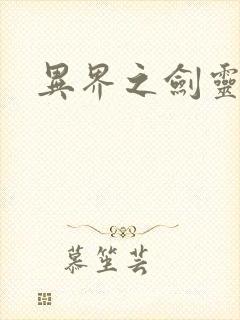 異界之劍靈
慕笙芸